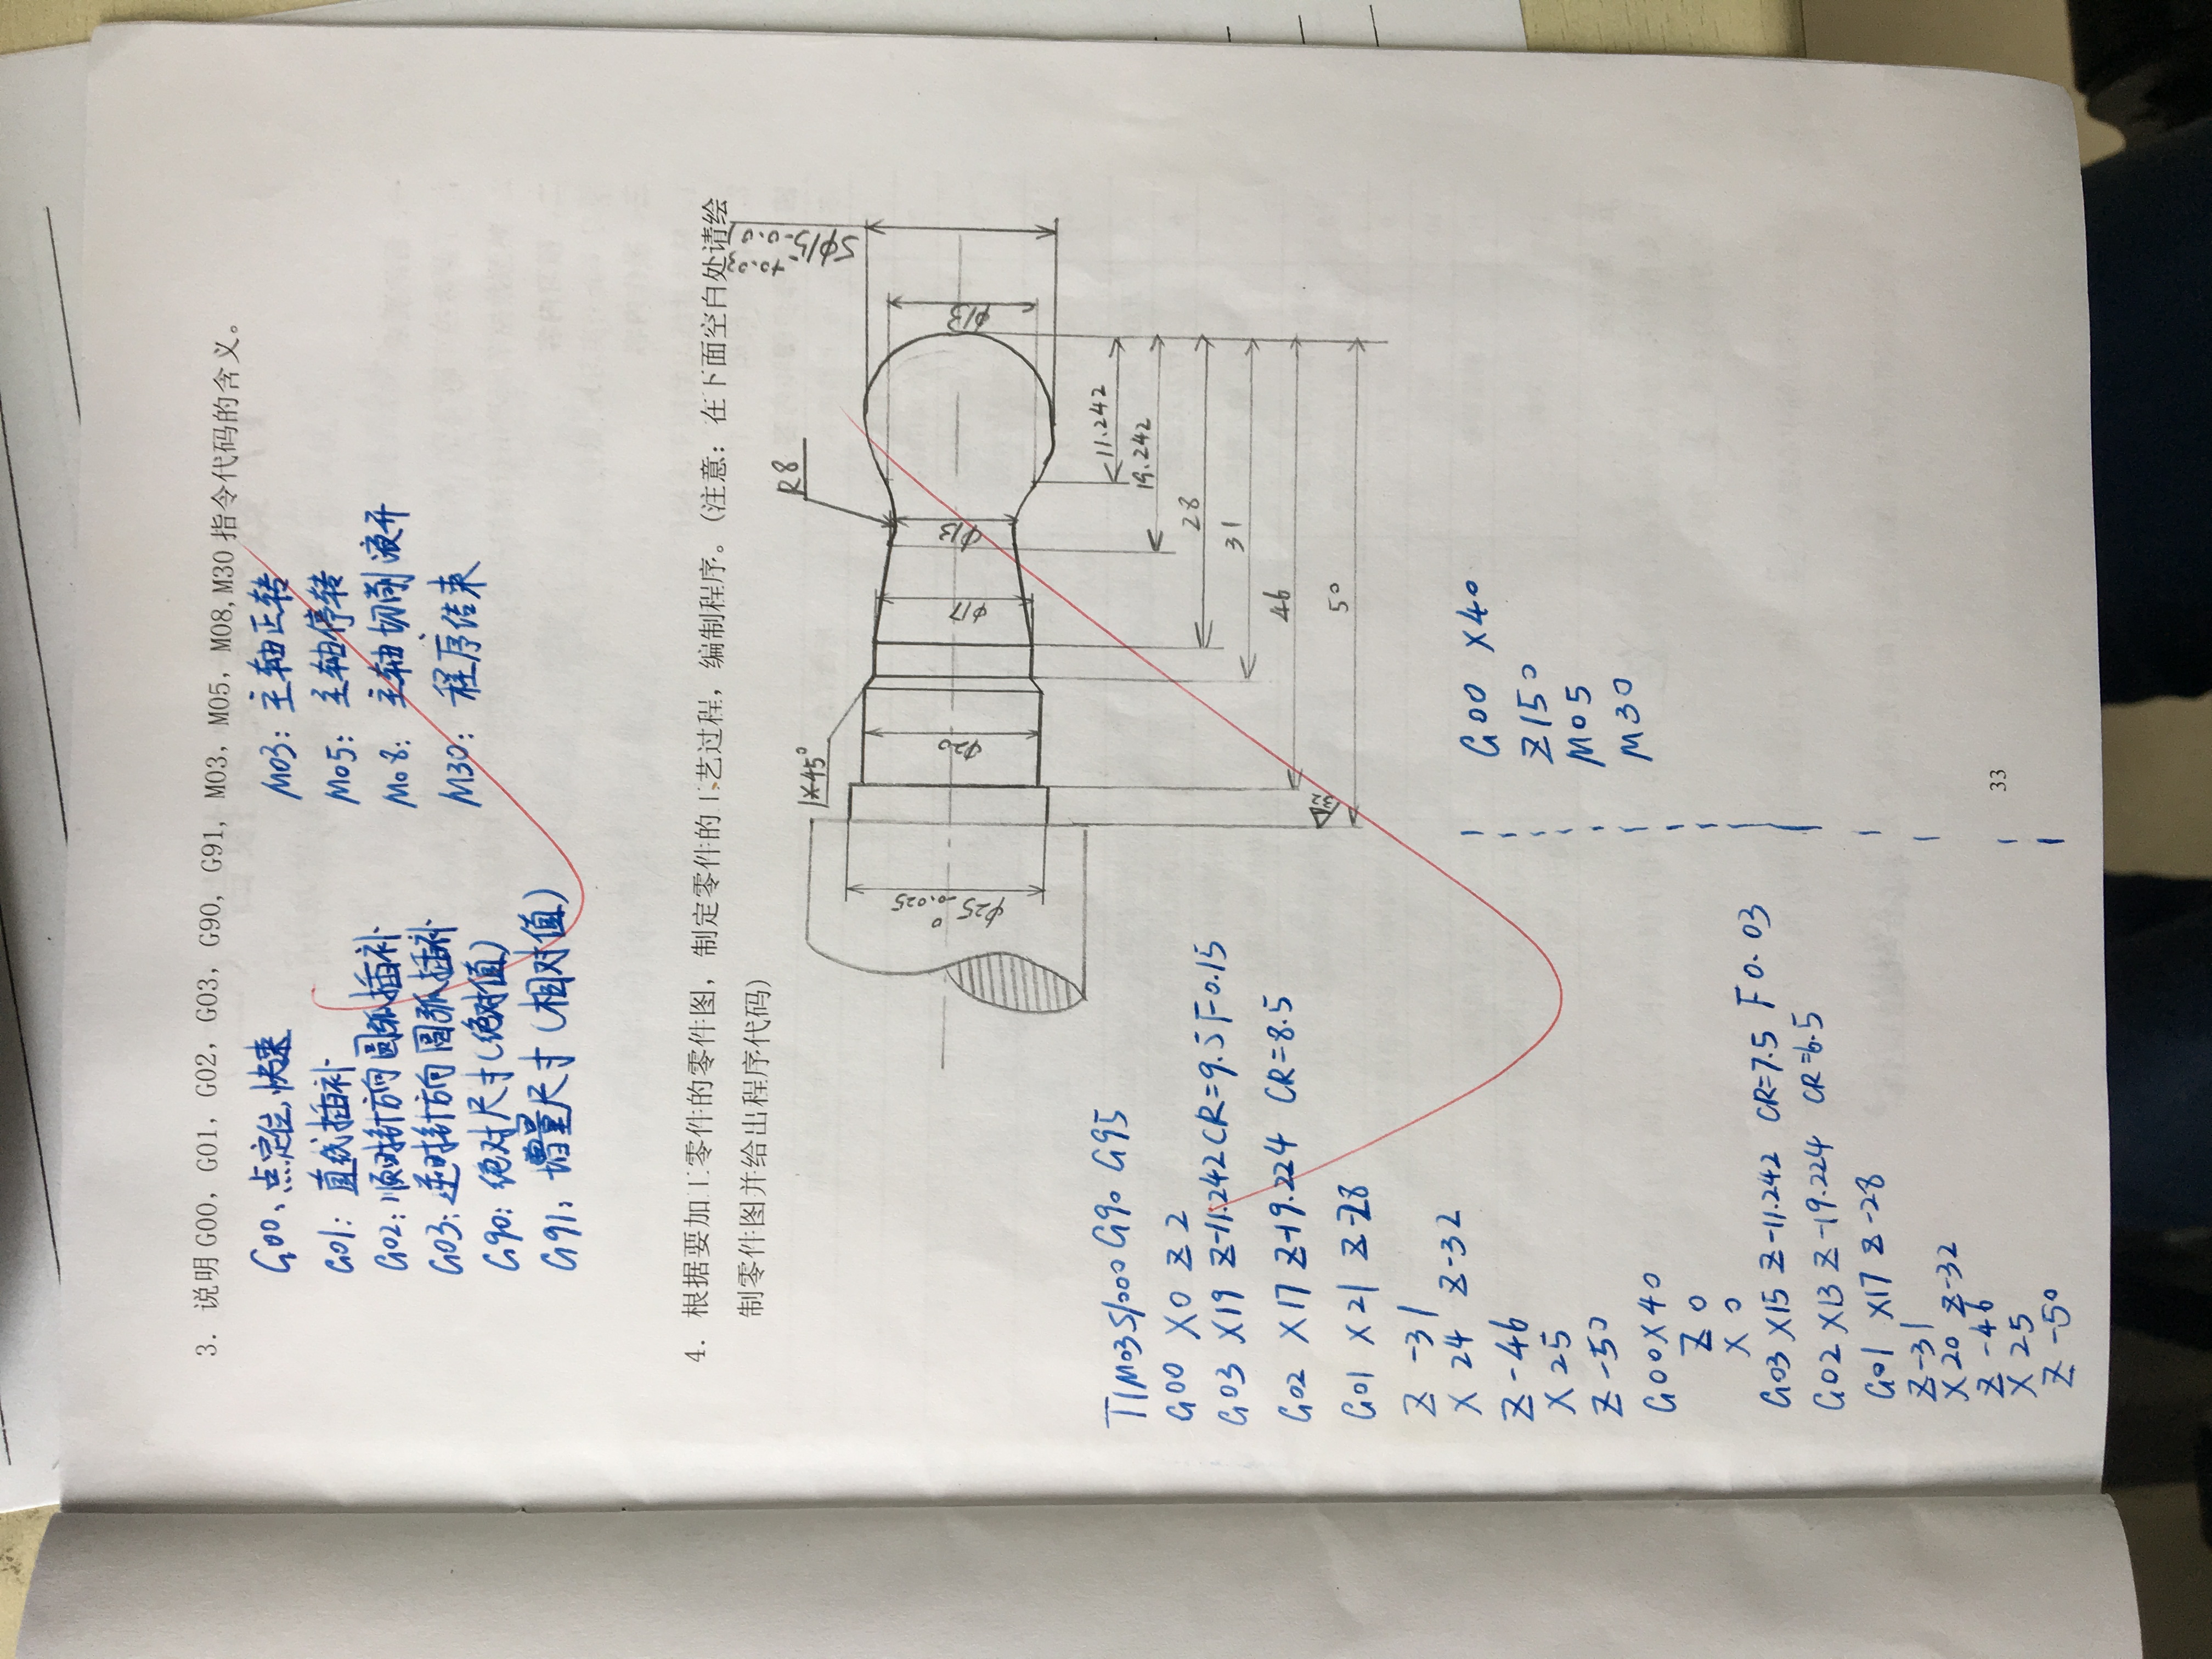 3. 说明 G00, G01, G02, G03, G90, G91, M03, M05, M08, M30 指令代码的含义。
G00、点定位,快速
G01: 直线插补
G02: 顺时针方向圆弧插补
G03: 逆时针方向圆弧插补
G90: 绝对尺寸(绝对值)
G91: 增量尺寸(相对值)
M03: 主轴正转
M05: 主轴停转
M08: 主轴切削液开
M30: 程序结束
4. 根据要加工零件的零件图，制定零件的工艺过程，编制程序。(注意：在下面空白处请绘
制零件图并给出程序代码)
1×45°
R8
Sφ15 +0.03 -0.01
φ25 0 -0.025
φ20
φ17
φ13
φ13
11.242
19.242
28
31
46
50
32
T1M03S1000 G90 G95
G00 X0 Z2
G03 X19 Z-11.242 CR=9.5 F0.15
G02 X17 Z-19.224 CR=8.5
G01 X21 Z-28
Z-31
X24 Z-32
Z-46
X25
Z-50
G00X40
Z0
X0
G03 X15 Z-11.242 CR=7.5 F0.03
G02 X13 Z-19.224 CR=6.5
G01 X17 Z-28
Z-31
X20 Z-32
Z-46
X25
Z-50
G00 X40
Z150
M05
M30
33